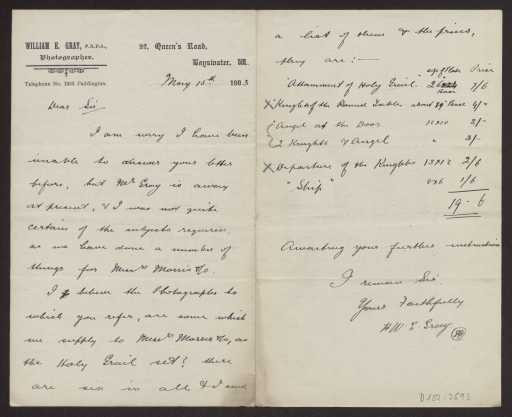 WILLIAM E. GRAY, F.R.P.S.,
Photographer.
Telephone No. 1305 Paddington.
92, Queen's Road,
Bayswater, W.
May 15th 190
Dear Sir
I am sorry I have been
unable to answer your letter
before, but Mr Gray is away
at present, & I was not quite
certain of the subjects required,
as we have done a number of
things for Messrs Morris & Co.
I believe the Photographs to
which you refer, are some which
we supply to Messrs Morris & Co, as
the Holy Grail set? there
are six in all & I send
a list of them & the prices,
they are :—
Price
"Attainment of Holy Grail"
7/6
X Knights of the Round Table about
Angel at the Door
3/-
2 Knights & Angel " 3/-
X Departure of the Knights 2/6
"Ship" 1/6
19-6
Awaiting your further instructions
I remain Sir
Yours Faithfully
W E Gray